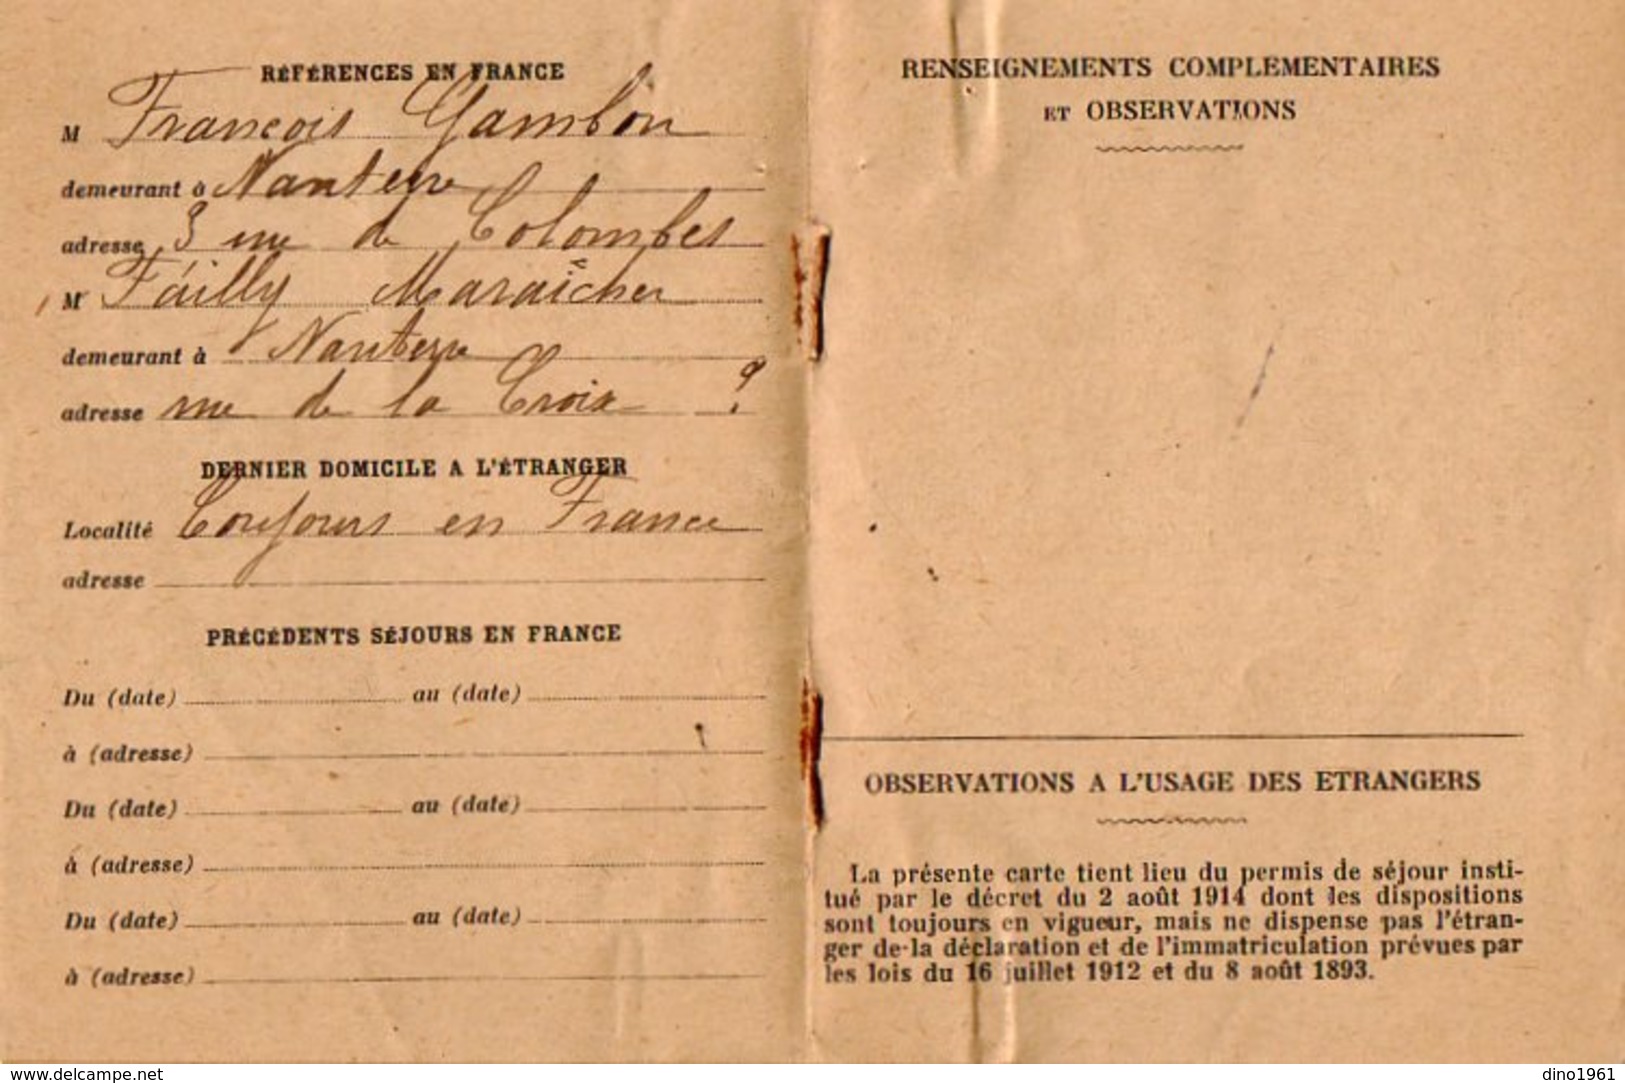 RÉFÉRENCES EN FRANCE
M François Gambon
demeurant à Nanterre
adresse 3 rue de Colombes
M Failly Maraîcher
demeurant à Nanterre
adresse rue de la Croix ?
DERNIER DOMICILE A L'ÉTRANGER
Localité Toujours en France
adresse
PRÉCÉDENTS SÉJOURS EN FRANCE
Du (date) au (date)
à (adresse)
Du (date) au (date)
à (adresse)
Du (date) au (date)
à (adresse)
RENSEIGNEMENTS COMPLEMENTAIRES
ET OBSERVATIONS
OBSERVATIONS A L'USAGE DES ETRANGERS
La présente carte tient lieu du permis de séjour insti-
tué par le décret du 2 août 1914 dont les dispositions
sont toujours en vigueur, mais ne dispense pas l'étran-
ger de-la déclaration et de l'immatriculation prévues par
les lois du 16 juillet 1912 et du 8 août 1893.
www.delcampe.net
dino1961